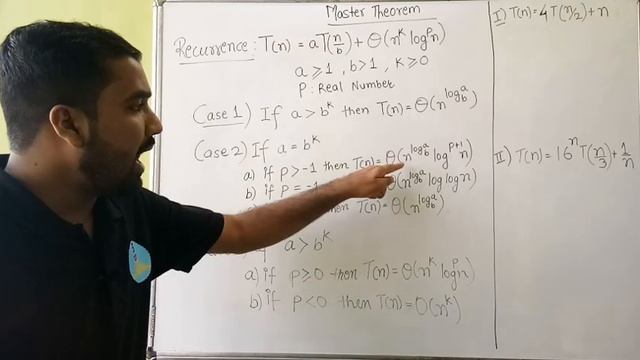 Master Theorem
Recurrence: T(n) = aT(n/b) + θ(n^k log^p n)
a ⩾ 1, b > 1, k ⩾ 0
P: Real Number
Case 1) If a > b^k then T(n) = θ(n^log_b^a)
Case 2) If a = b^k
a) if P > -1 then T(n) = θ(n^log_b^a log^p+1 n)
b) if P = -1 θ(n^log_b^a log log n)
then T(n) = θ(n^log_b^a)
if a > b^k
a) if P ⩾ 0 then T(n) = θ(n^k log^p n)
b) if P < 0 then T(n) = O(n^k)
I) T(n) = 4T(n/2) + n
II) T(n) = 16^n T(n/3) + 1/n